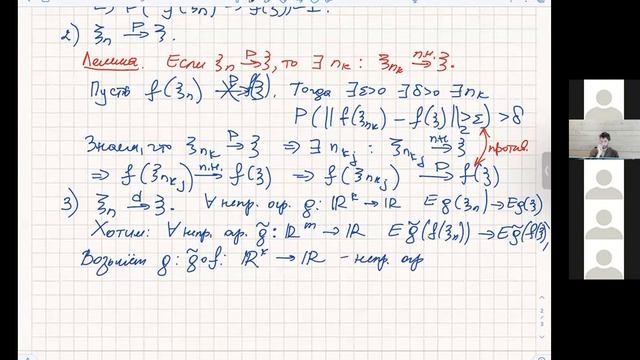 ⇒ P( g(ξn) → f(ξ))=1.
2) ξn —P→ ξ.
Лемма. Если ξn —P→ ξ, то ∃ nk : ξnk —п.н.→ ξ.
Пусть f(ξn) —P↛ f(ξ). Тогда ∃ε>0 ∃δ>0 ∃nk
P(‖f(ξnk) − f(ξ)‖>ε) >δ
Знаем, что ξnk —P→ ξ ⇒ ∃ nkj : ξnkj —п.н.→ ξ
против.
⇒ f(ξnkj) —п.н.→ f(ξ) ⇒ f(ξnkj) —P→ f(ξ)
3) ξn —d→ ξ. ∀ непр. огр. g: ℝᵏ → ℝ E g(ξn) → E g(ξ)
Хотим: ∀ непр. огр. g̃ : ℝᵐ → ℝ E g̃(f(ξn)) → E g̃(f(ξ)),
Возьмём g: g̃∘f: ℝᵏ → ℝ – непр. огр